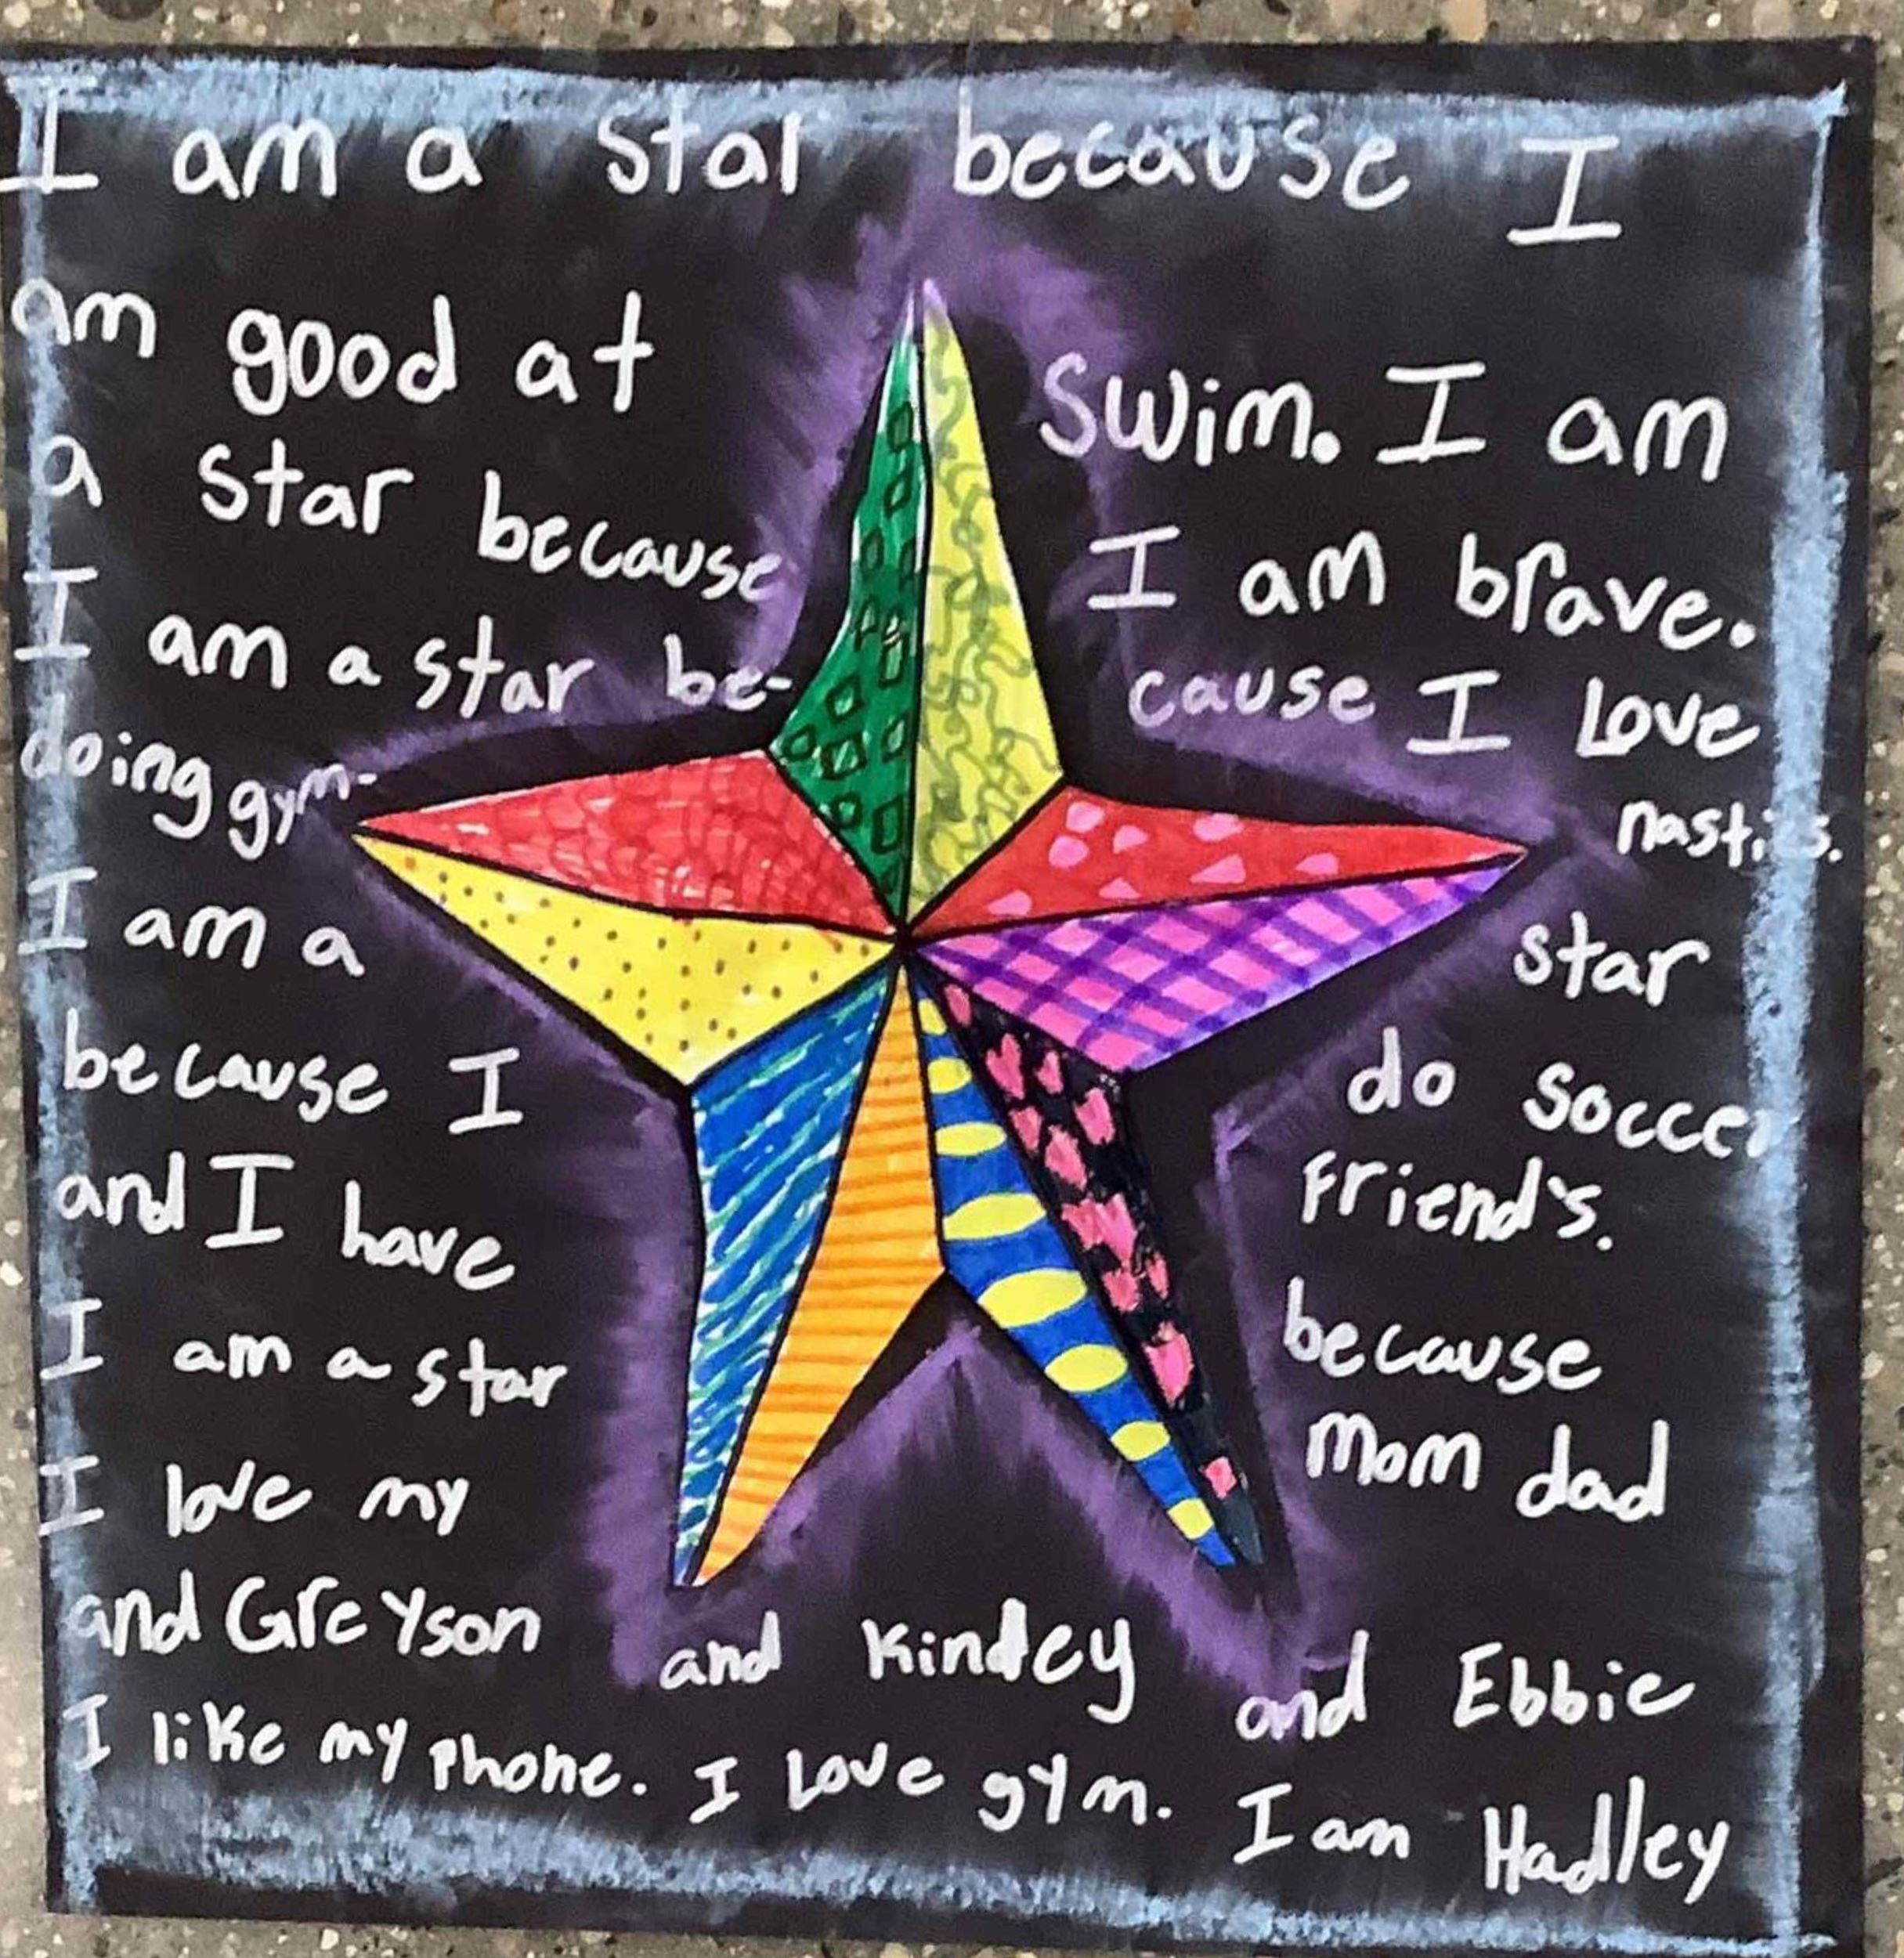 I am a star because I
am good at swim. I am
a star because I am brave.
I am a star be- cause I love
doing gym- nastics.
I am a star
because I do soccer
and I have friend's.
I am a star because
I love my mom dad
and Greyson and Kindey and Ebbie
I like my phone. I love gym. I am Hadley